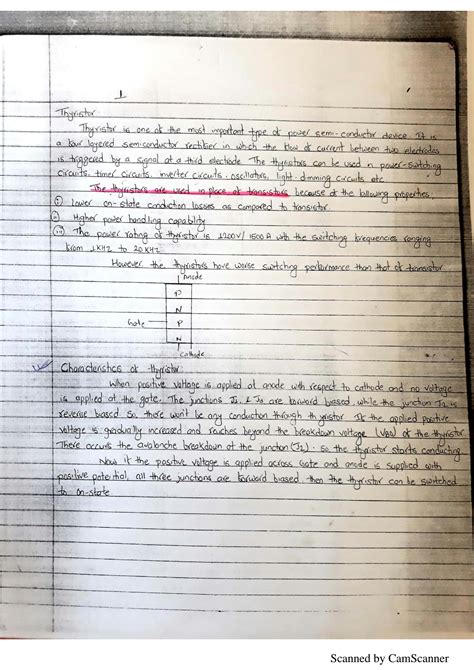 1
Thyristor
Thyristor is one of the most important type of power semi-conductor device. It is
a four layered semi-conductor rectifier in which the flow of current between two electrodes
is triggered by a signal at a third electrode. The thyristors can be used in power-switching
circuits, timer circuits, inverter circuits, oscillators, light-dimming circuits etc
The thyristors are used in place of transistors because of the following properties,
(i) Lower on-state conduction losses as compared to transistor.
(ii) Higher power handling capability
(iii) The power rating of thyristor is 1200V/1500A with the switching frequencies ranging
from 1KHZ to 20KHZ
However, the thyristors have worse switching performance than that of transistor
Anode
P
N
Gate P
N
Cathode
Characteristics of thyristor:
When positive voltage is applied at anode with respect to cathode and no voltage
is applied at the gate. The junctions J1 & J3 are forward biased while the junction J2 is
reverse biased. So, there won't be any conduction through thyristor. If the applied positive
voltage is gradually increased and reaches beyond the breakdown voltage (VBO) of the thyristor.
There occurs the avalanche breakdown at the junction (J2). So the thyristor starts conducting.
Now if the positive voltage is applied across Gate and anode is supplied with
positive potential, all three junctions are forward biased then the thyristor can be switched
to on-state
Scanned by CamScanner